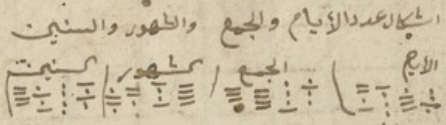 اشكال عدد الأيام والجمع والشهور والسنين
الأيام الجمع الشهور السنين